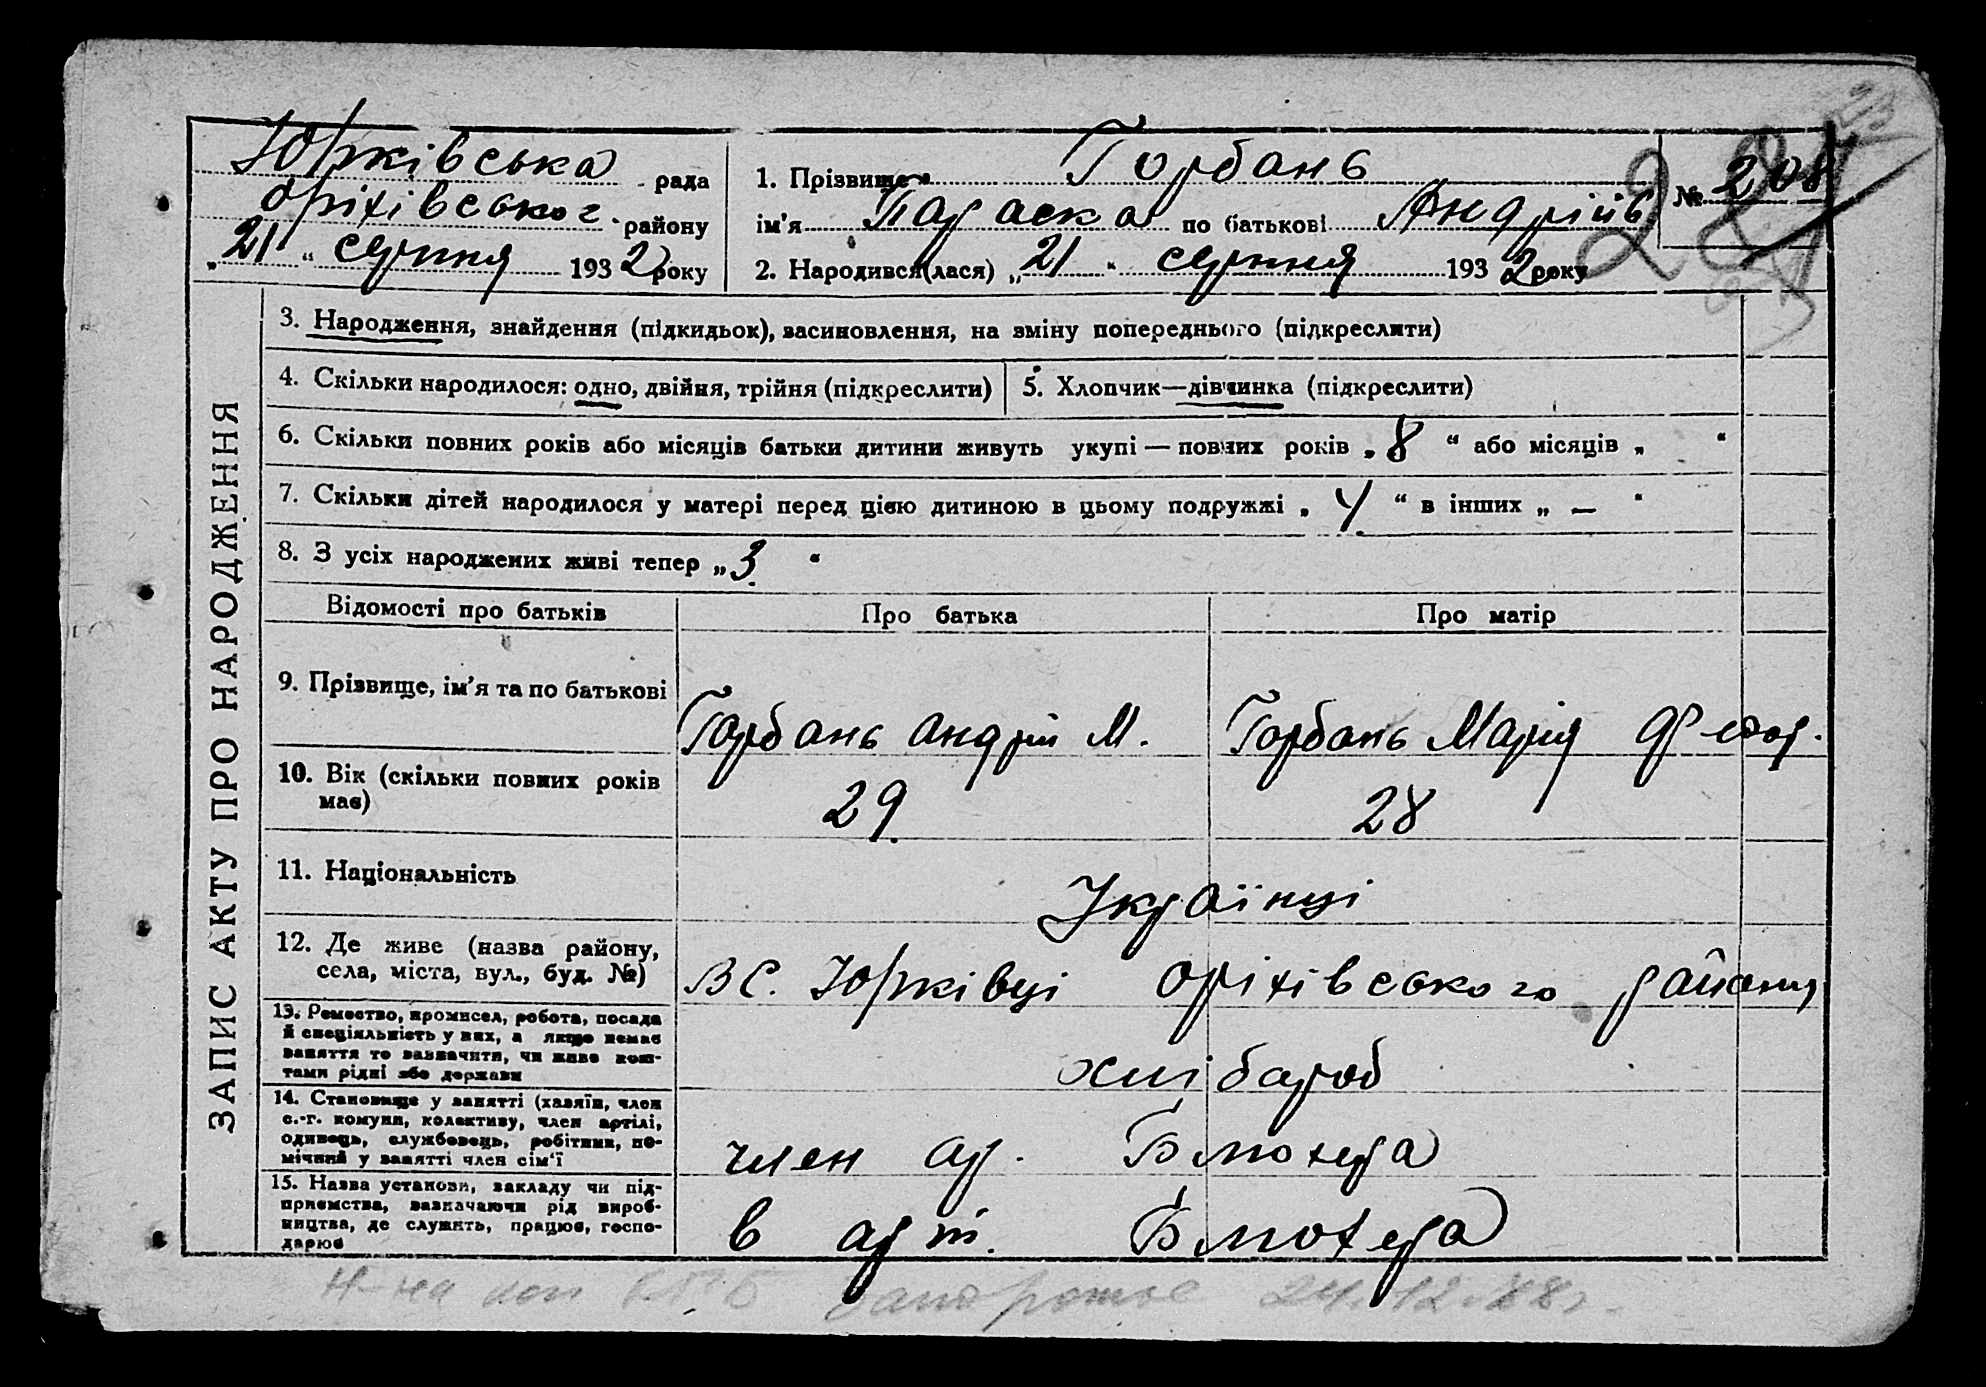 Юрківська рада
Оріхівськог. району
„21“ серпня 1932 року
1. Прізвище Горбань
ім'я Параска по батькові Андрійів
2. Народився(лася) „21“ серпня 1932 року
№ 208
ЗАПИС АКТУ ПРО НАРОДЖЕННЯ
3. Народження, знайдення (підкидьок), васиновлення, на зміну попереднього (підкреслити)
4. Скільки народилося: одно, двійня, трійня (підкреслити)
5. Хлопчик—дівчинка (підкреслити)
6. Скільки повних років або місяців батьки дитини живуть укупі — повних років „8“ або місяців „ “
7. Скільки дітей народилося у матері перед цією дитиною в цьому подружжі „4“ в інших „—“
8. З усіх народжених живі тепер „3“
Відомості про батьків Про батька Про матір
9. Прізвище, ім'я та по батькові
Горбань Андрій М. Горбань Марія Федор.
10. Вік (скільки повних років
має)
29. 28
11. Національність
Українці
12. Де живе (назва району,
села, міста, вул., буд. №)
В С. Юрківці Оріхівського району
13. Ремество, промисел, робота, посада
й спеціяльність у них, а якщо немає
заняття то зазначити, чи живе кош-
тами рідні або держави
хлібороб
14. Становище у занятті (хазяїн, член
с.-г. комуни, колективу, член артілі,
одинець, службовець, робітник, по-
мічний у занятті член сім'ї
член ар. Блюхера
15. Назва установи, закладу чи під-
приємства, зазначаючи рід вироб-
ництва, де служить, працює, госпо-
дарює
в арт. Блюхера
Запорожье 24.12.88г.